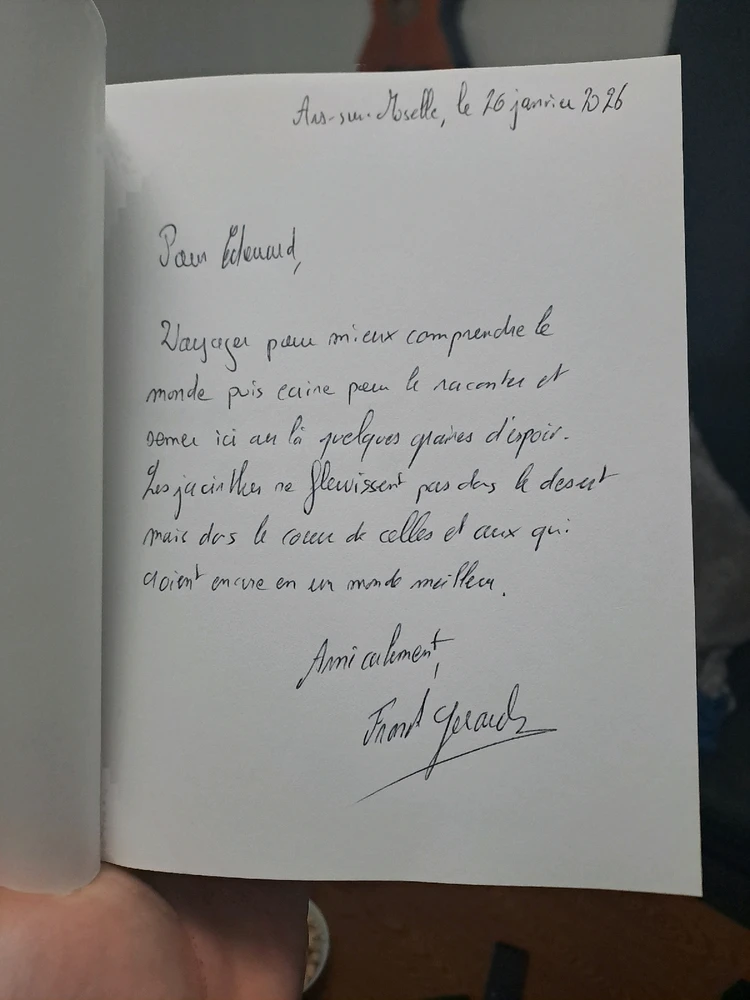 Ars-sur-Moselle, le 26 janvier 2026
Pour Edouard,
Voyager pour mieux comprendre le
monde puis écrire pour le raconter et
semer ici ou là quelques graines d'espoir.
Les jacinthes ne fleurissent pas dans le desert
mais dans le coeur de celles et ceux qui
croient encore en un monde meilleur.
Amicalement,